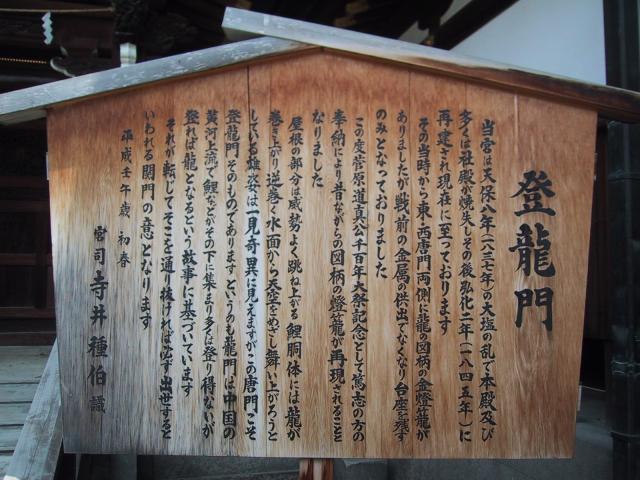 登龍門
当宮は天保八年(一八三七年)の大塩の乱で本殿及び
多くは社殿が焼失しその後弘化二年(一八四五年)に
再建され現在に至っております
その当時から東、西唐門両側に龍の図柄の金燈籠が
ありましたが戦前の金属の供出でなくなり台座を残す
のみとなっておりました
この度菅原道真公千百年大祭記念として篤志の方の
奉納により昔ながらの図柄の燈籠が再現されること
なりました
屋根の部分は威勢よく跳ね上がる鯉胴体には龍が
巻き上がり逆巻く水面から天空をめざし舞い上がろうと
している雄姿は一見奇異に見えますがこの唐門こそ
登龍門そのものであります というのも龍門は中国の
黄河上流で鯉などがその下に集まり多くは登り得ないが
登れば龍となるという故事に基づいています
それが転じてそこを通り抜ければ必ず出世すると
いわれる関門の意となります
平成壬午歳 初春
宮司 寺井種伯 識